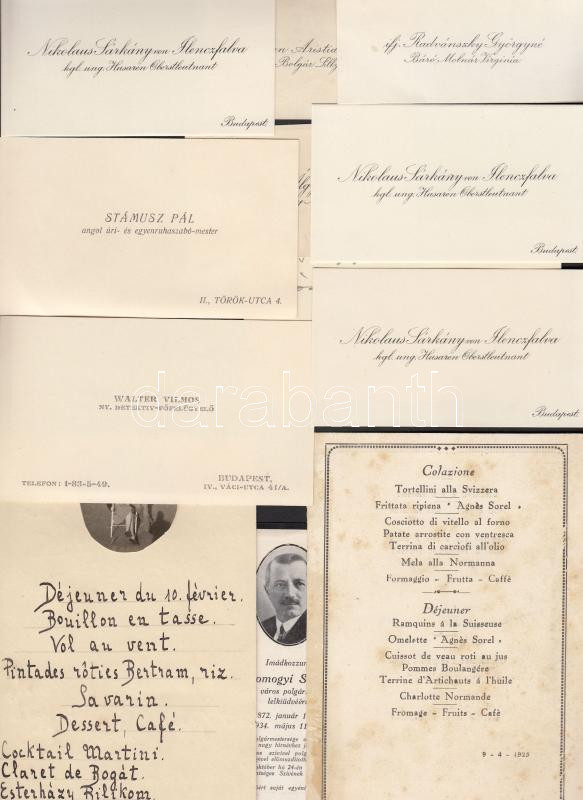 Nikolaus Sárkány von Ilenczfalva
kgl. ung. Husaren Oberstleutnant
Budapest.
Aristid
Bolgár Lilly
ifj. Radvánszky Györgyné
Báró Molnár Virginia
STÁMUSZ PÁL
angol úri- és egyenruhaszabó-mester
II., TÖRÖK-UTCA 4.
Nikolaus Sárkány von Ilenczfalva
kgl. ung. Husaren Oberstleutnant
Budapest.
Nikolaus Sárkány von Ilenczfalva
kgl. ung. Husaren Oberstleutnant
Budapest.
WALTER VILMOS
NY. DETEKTIV-FŐFELÜGYELŐ
TELEFON: 1-83-5-49.
BUDAPEST,
IV., VÁCI-UTCA 41/A.
darabanth
Déjeuner du 10. février.
Bouillon en tasse.
Vol au vent.
Pintades rôties Bertram, riz.
Savarin.
Dessert, Café.
Cocktail Martini.
Claret de Bogát.
Esterházy Rillkom.
Imádkozzun
omogyi S
város polgár
lelkiüdvéér
872. január 1
934. május 11
Colazione
Tortellini alla Svizzera
Frittata ripiena "Agnès Sorel"
Cosciotto di vitello al forno
Patate arrostite con ventresca
Terrina di carciofi all'olio
Mela alla Normanna
Formaggio - Frutta - Caffè
Déjeuner
Ramquins á la Suisseuse
Omelette "Agnès Sorel"
Cuissot de veau roti au jus
Pommes Boulangére
Terrine d'Artichauts á l'huile
Charlotte Normande
Fromage - Fruits - Cafè
9 - 4 - 1925